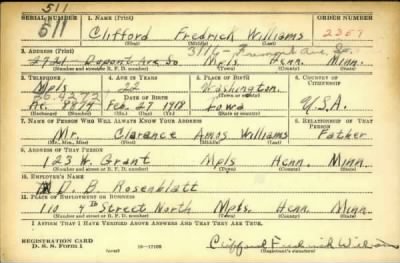 511
SERIAL NUMBER 1. NAME (Print) ORDER NUMBER
511 Clifford Fredrick Williams 2359
(First) (Middle) (Last)
2. ADDRESS (Print) 3116- Fremont Ave. So.
2721 Dupont Ave So Mpls Henn. Minn.
(Number and street or R. F. D. number) (Town) (County) (State)
3. TELEPHONE 4. AGE IN YEARS 5. PLACE OF BIRTH 6. COUNTRY OF CITIZENSHIP
Mpls 22 Washington
DATE OF BIRTH (Town or county)
At. 8879 Feb. 27 1918 Iowa U.S.A.
(Mo.) (Day) (Yr.) (State or country)
7. NAME OF PERSON WHO WILL ALWAYS KNOW YOUR ADDRESS 8. RELATIONSHIP OF THAT PERSON
Mr. Clarance Amos Williams Father
(Mr., Mrs., Miss) (First) (Middle) (Last)
9. ADDRESS OF THAT PERSON
123 W. Grant Mpls Henn. Minn.
(Number and street or R. F. D. number) (Town) (County) (State)
10. EMPLOYER'S NAME
D. B. Rosenblatt
11. PLACE OF EMPLOYMENT OR BUSINESS
110 4th Street North Mpls. Henn. Minn.
(Number and street or R. F. D. number) (Town) (County) (State)
I AFFIRM THAT I HAVE VERIFIED ABOVE ANSWERS AND THAT THEY ARE TRUE.
REGISTRATION CARD
D. S. S. FORM 1 (over) 16-17105 Clifford Fredrick Williams
(Registrant's signature)